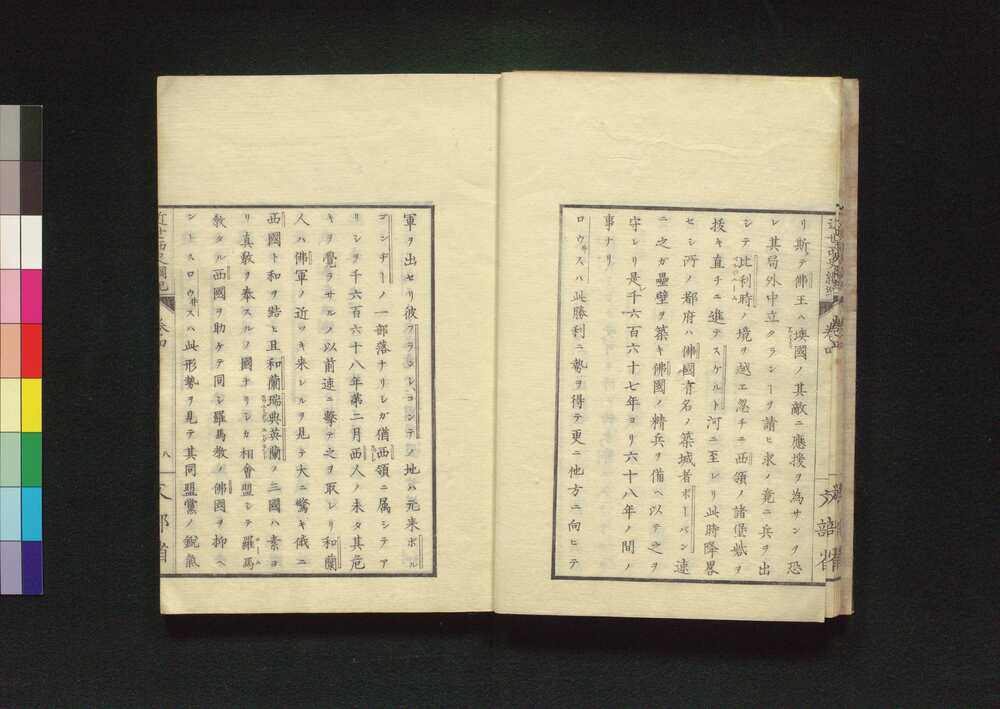 リ斯テ佛王ハ墺國ノ其敵ニ應援ヲ為サンヲ恐
レ其局外中立タランヿヲ請ヒ求メ竟ニ兵ヲ出
シテ比利時ノ境ヲ越エ忽チニ西領ノ諸堡砦ヲ
抜キ直チニ進テスケルト河ニ至レリ此時降畧
セシ所ノ都府ハ佛國有名ノ築城者ボーバン速
ニ之ガ壘壁ヲ築キ佛國ノ精兵ヲ備ヘ以テ之ヲ
守レリ是千六百六十七年ヨリ六十八年ノ間ノ
事ナリ
ロウ井スハ此勝利ニ勢ヲ得テ更ニ他方ニ向ヒテ
軍ヲ出セリ彼フランシレコンテノ地ハ元来ボル
ゴンヂーノ一部落ナリシガ猶西領ニ属シテア
リシヲ千六百六十八年第二月西人ノ未タ其危
キヲ覺ラサルノ以前速ニ擊テ之ヲ取レリ和蘭
人ハ佛軍ノ近ツキ来レルヲ見テ大ニ驚キ俄ニ
西國ト和ヲ結ヒ且和蘭瑞典英蘭ノ三國ハ素ヨ
リ真教ヲ奉スルノ國ナリシカ相會盟シテ羅馬
教タル西國ヲ助ケテ同シ羅馬教ノ佛國ヲ抑ヘ
ントスロウ井スハ此形勢ヲ見テ其同盟黨ノ銳氣
近世西史綱紀 卷四 八 文部省